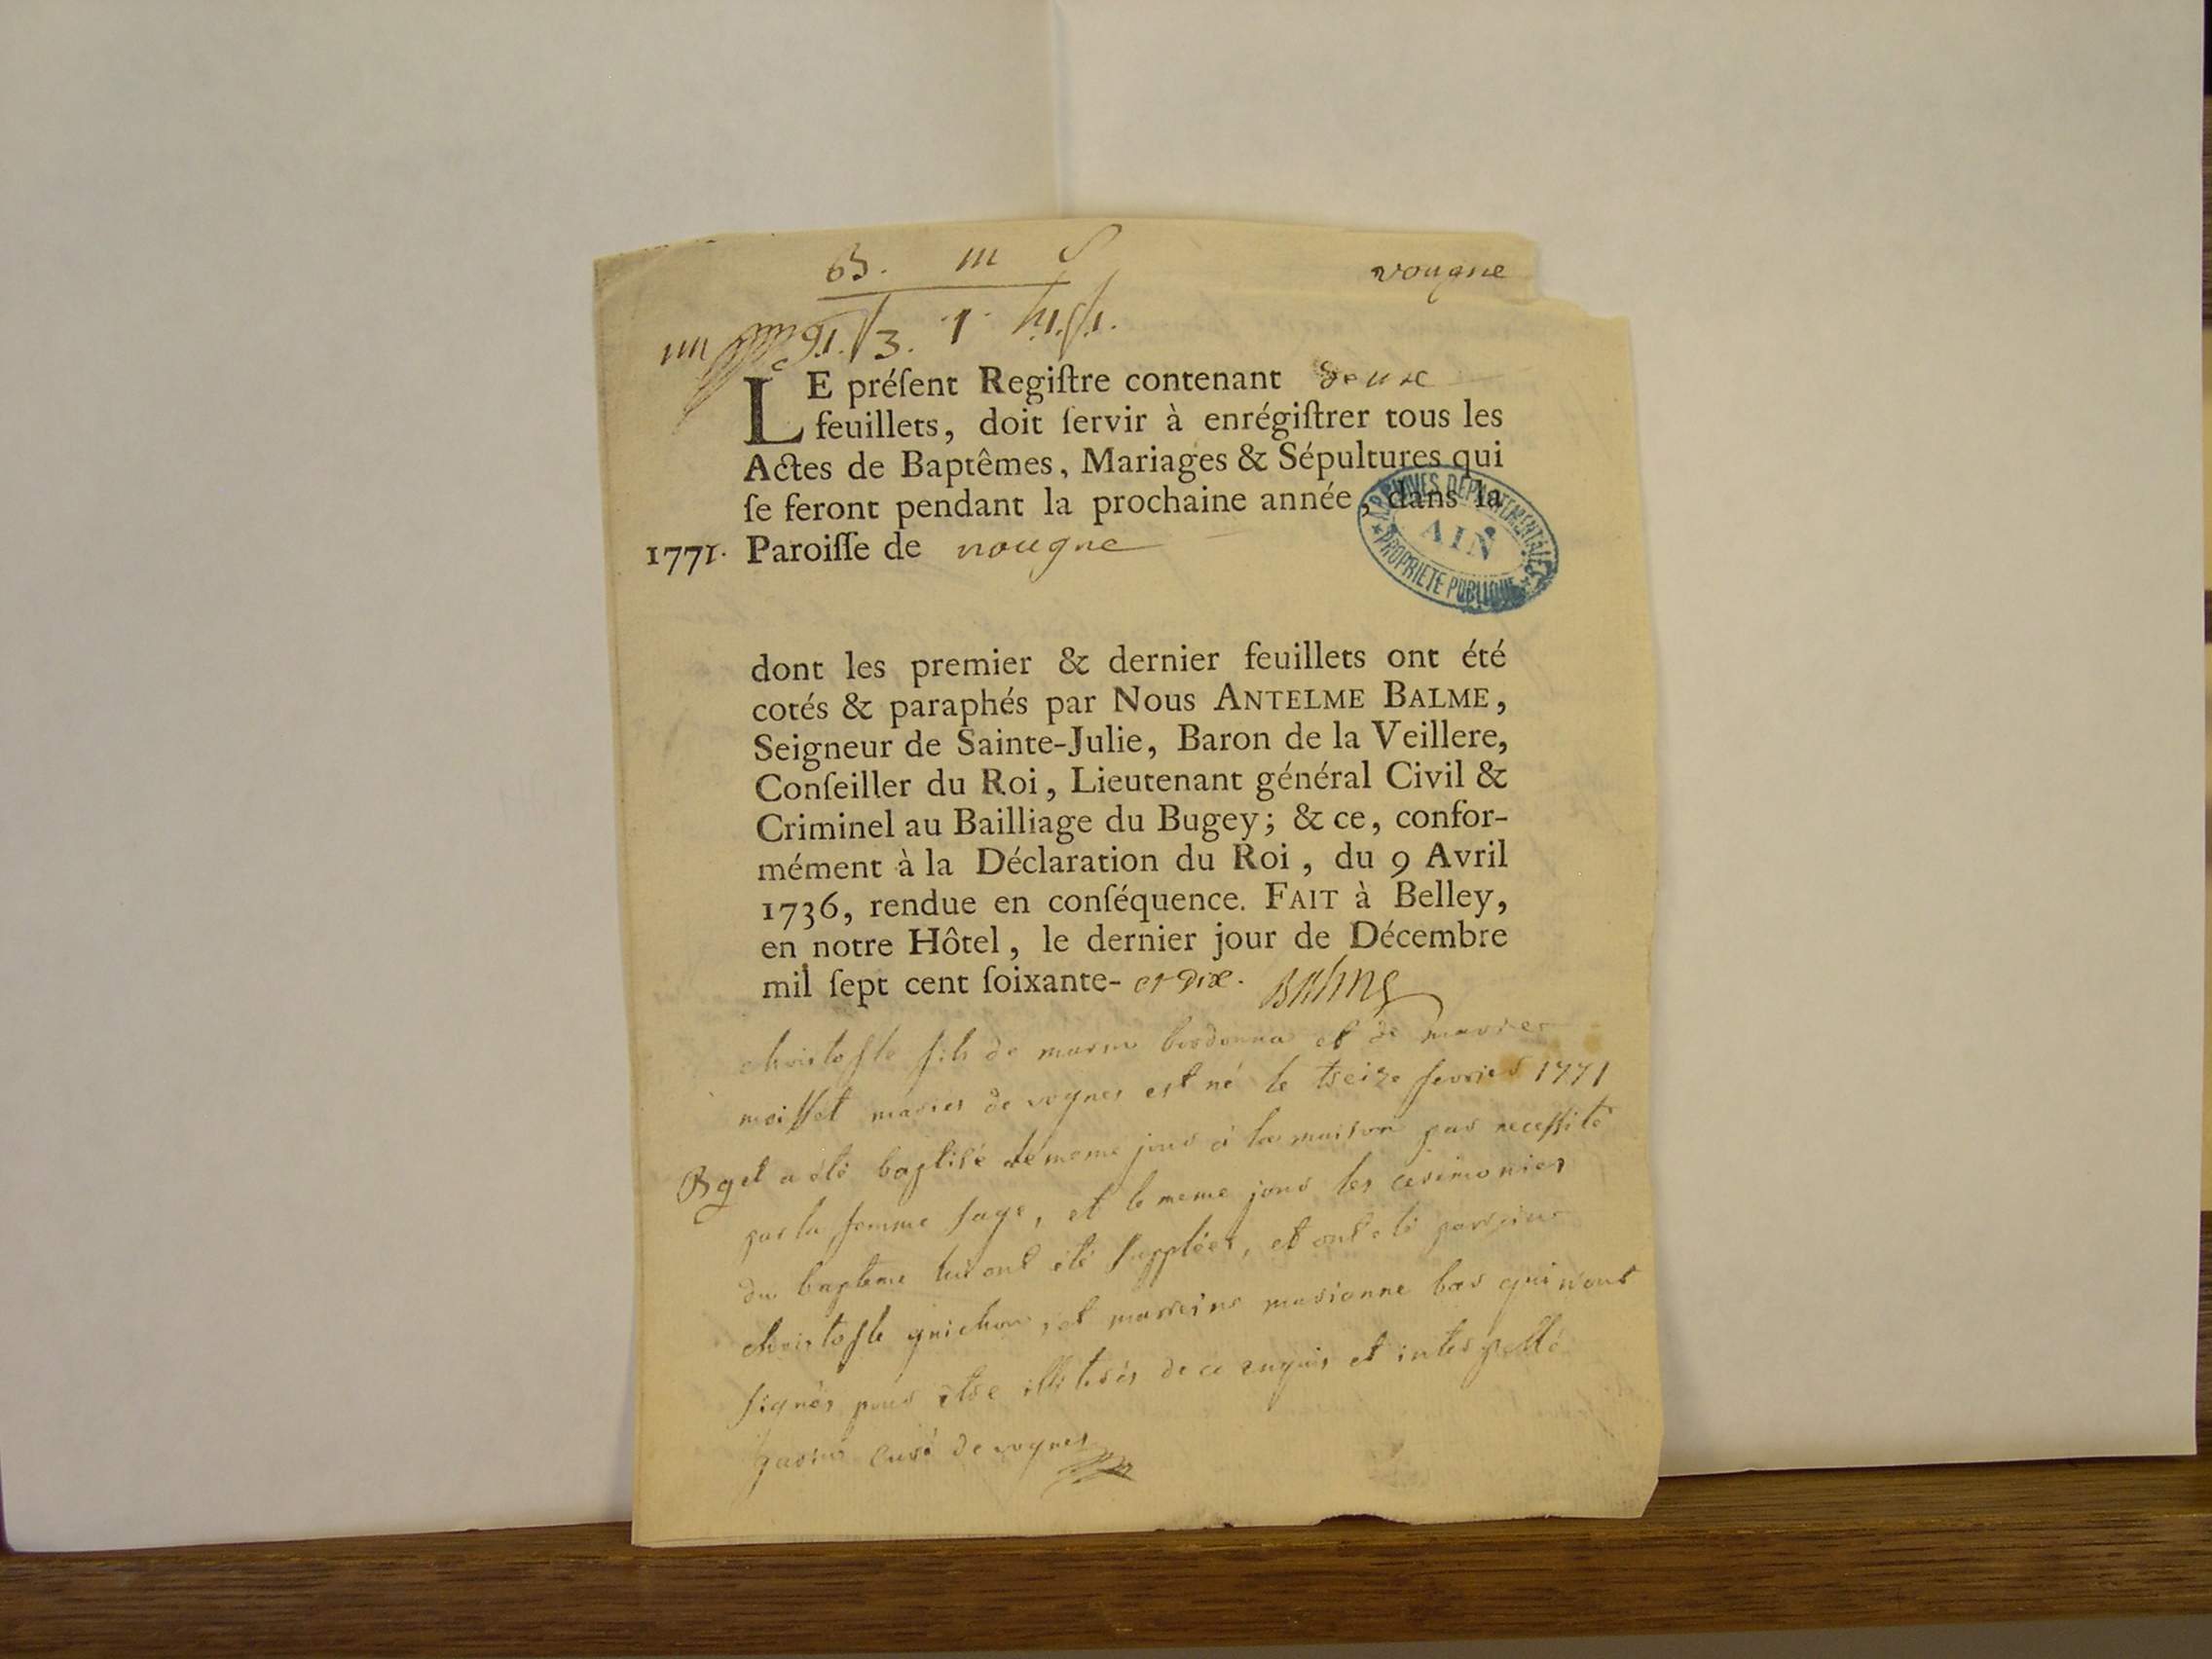 B. m S
vougne
un B. 3. m. 1. S. 1.
LE préſent Regiſtre contenant deux
feuillets, doit ſervir à enrégiſtrer tous les
Actes de Baptêmes, Mariages & Sépultures qui
ſe feront pendant la prochaine année, dans la
1771. Paroiſſe de vougne
ARCHIVES DEPARTEMENTALES
AIN
PROPRIETE PUBLIQUE
dont les premier & dernier feuillets ont été
cotés & paraphés par Nous ANTELME BALME,
Seigneur de Sainte-Julie, Baron de la Veillere,
Conſeiller du Roi, Lieutenant général Civil &
Criminel au Bailliage du Bugey; & ce, confor-
mément à la Déclaration du Roi, du 9 Avril
1736, rendue en conſéquence. FAIT à Belley,
en notre Hôtel, le dernier jour de Décembre
mil ſept cent ſoixante- et dix. Balme
christofle fils de bordonna et de
moiffet mariés de vognes est né le treize fevrier 1771
B et a été baptisé le meme jour à la maison par necessité
par la femme sage, et le meme jour les ceremonies
du bapteme lui ont été suppléés, et ont eté parrain
christofle guichon, et marreine marianne bor qui n'ont
signés pour etre illiterés de ce enquis et interpellé
curé de vognes